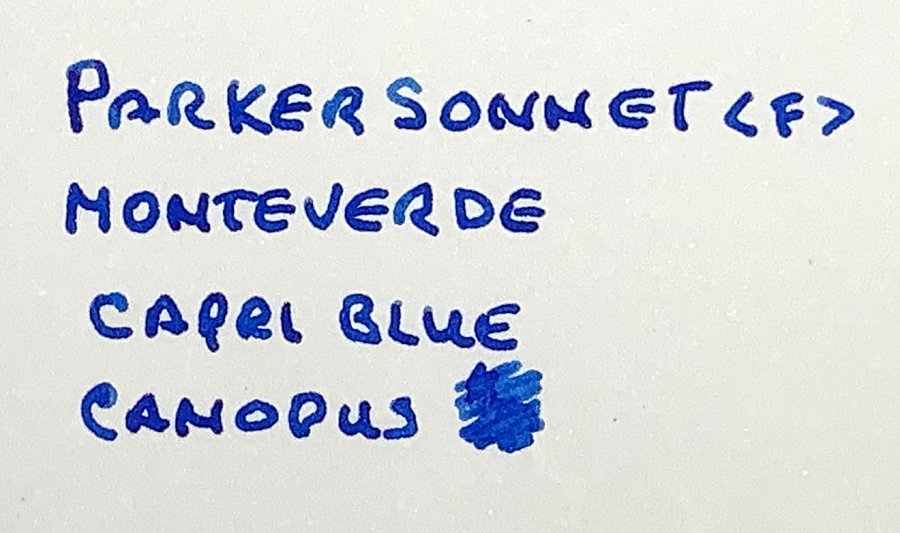 PARKER SONNET <F>
MONTEVERDE
CAPRI BLUE
CANOPUS